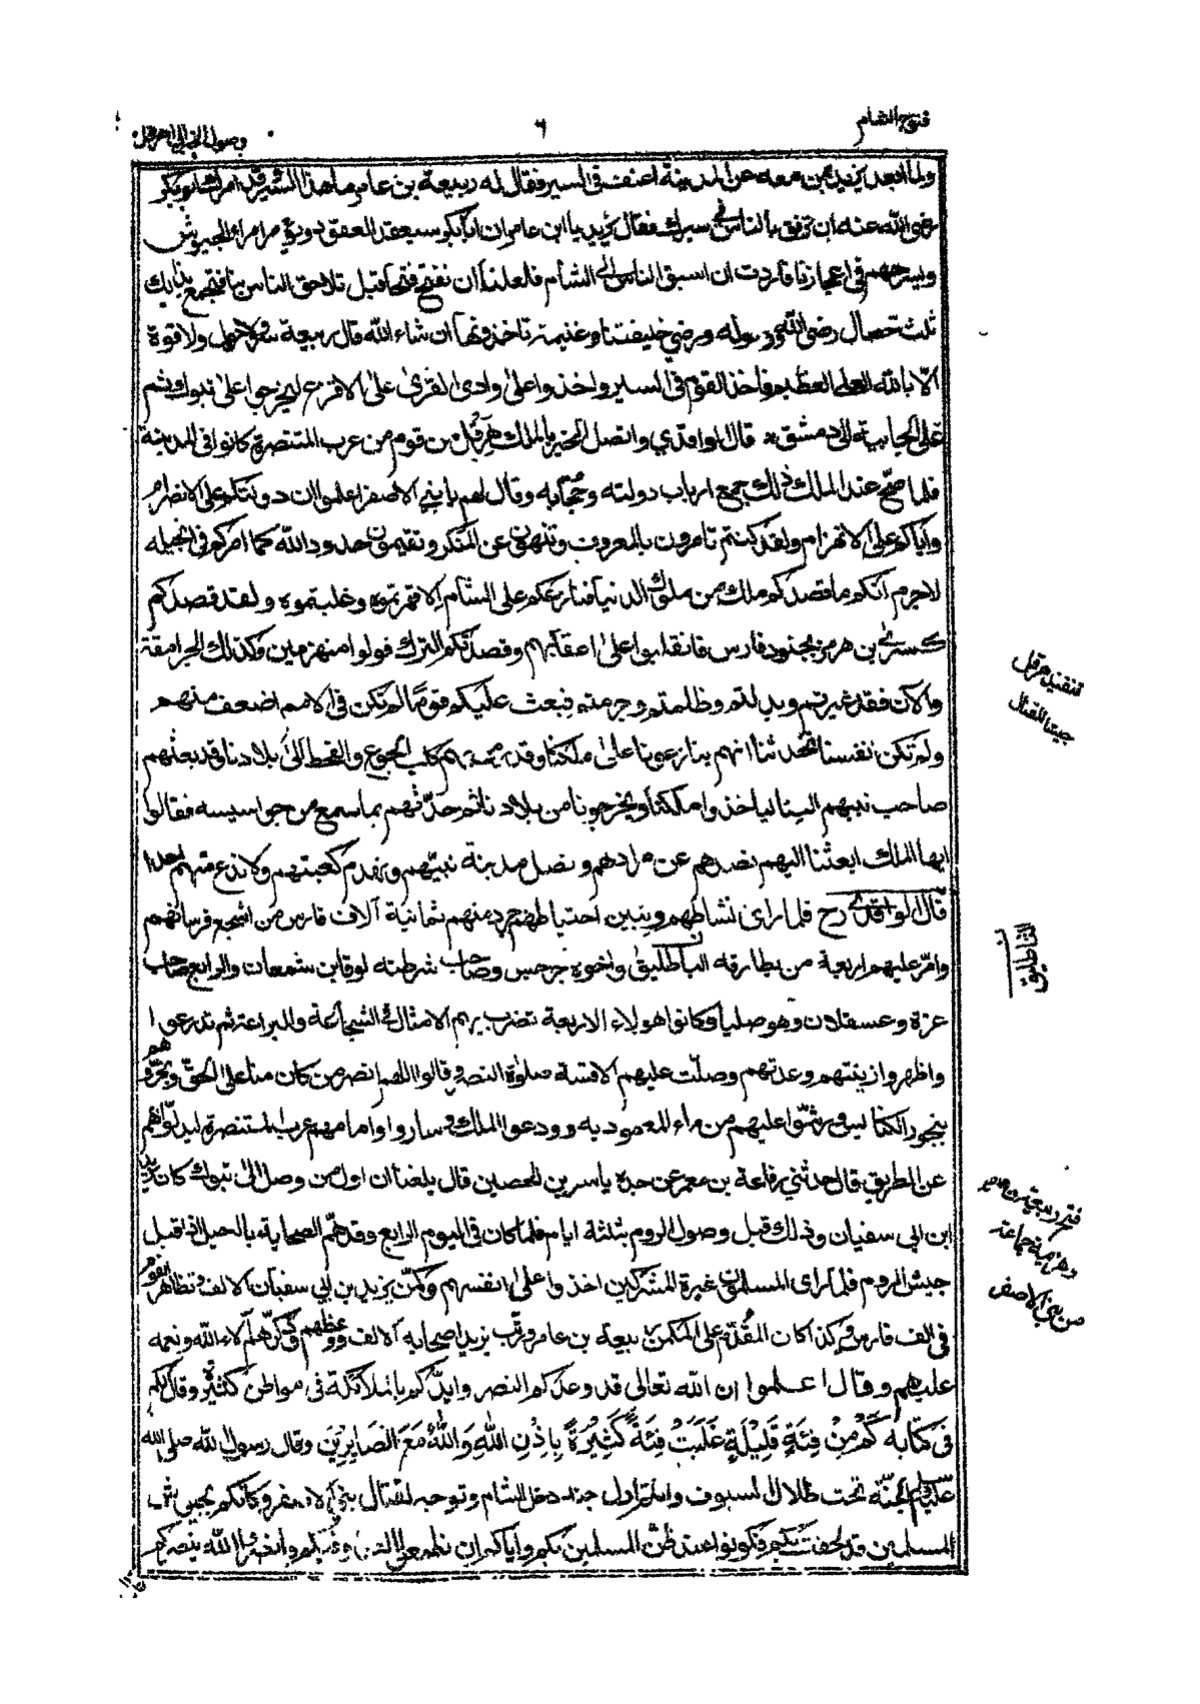 فتوح الشام
٦
وصول الخبر الى هرقل
ولما ابعد يزيد بمن معه عن المدينة اعنف فى السير فقال له ربيعة بن عامر ما هذا السير قد امرك ابو بكر
رضى الله عنه ان ترفق بالناس فى سيرك فقال يزيد يا ابن عامر ان ابا بكر سيعقد العقود ويؤمر امراء الجيوش
ويسرحهم فى اعجازنا فاردت ان اسبق الناس الى الشأم فلعلنا ان نفتح فتحا قبل تلاحق الناس بنا فتجمع بذلك
ثلث خصال رضى الله ورسوله ورضى خليفتنا وغنيمة تاخذونها ان شاء الله قال ربيعة سر ولا حول ولا قوة
الا بالله العلى العظيم فاخذ القوم فى السير واخذوا على وادى القرى على الاقرع ليخرجوا على تبوك ثم
على الجابية الى دمشق قال الواقدي واتصل الخبر بالملك هرقل من قوم من عرب المتنصرة كانوا فى المدينة
فلما صح عند الملك ذلك جمع ارباب دولته وحجابه وقال لهم يا بنى الاصفر اعلموا ان دولتكم على الانصرام
وايا كم على الانهزام ولقد كنتم تامرون بالمعروف وتنهون عن المنكر وتقيمون حدود الله كما امركم فى انجيله
لا جرم انكم ما قصدكم ملك من ملوك الدنيا فنازعكم على الشأم الا قهرتموه وغلبتموه ولقد قصدكم
كسرى بن هرمز بجنود فارس فانقلبوا على اعقابهم وقصدتكم الترك فولوا منهزمين وكذلك الجرامقة
والآن فقد غيرتم وبدلتم وظلمتم وجرمتم فبعث عليكم قوما لم تكن فى الامم اضعف منهم
ولم تكن انفسنا تحدثنا انهم ينازعونا على ملكنا وقد رمتهم كلب الجوع والقحط الى بلادنا وقد بعثهم
صاحب نبيهم الينا لياخذوا ملكنا ويخرجونا من بلادنا ثم حدثهم بما سمع من جواسيسه فقالوا
ايها الملك ابعثنا اليهم نصدهم عن مرادهم ونصل مدينة نبيهم ونهدم كعبتهم ولا ندع منهم احدا
قال الواقدى رح فلما راى نشاطهم وتبين احتياطهم جرد منهم ثمانية آلاف فارس من اشجع فرسانهم
وامر عليهم اربعة من بطارقه الباطليق واخوه جرجيس وصاحب شرطته لوقا بن شمعان والرابع صاحب
غزة وعسقلان وهو صليا وكانوا هولاء الاربعة تضرب بهم الامثال فى الشجاعة والبراعة ثم تدرعوا
واظهروا زينتهم وعدتهم وصلت عليهم الاقسة صلوة النصر وقالوا اللهم انصر من كان منا على الحق وبخروهم
بنجور الكنايس ورشوا عليهم من ماء المعموديه وودعوا الملك وساروا وامامهم عرب المتنصرة ليدلوهم
عن الطريق قال حدثني رفاعة بن معمر عن جده ياسر بن الحصين قال بلغنا ان اول من وصل الى تبوك كان يزيد
ابن ابى سفيان وذلك قبل وصول الروم بثلثة ايام فلما كان فى اليوم الرابع وقد هم الصحابة بالرحيل اذ اقبل
جيش الروم فلما راى المسلمون غبرة المشركين اخذوا على انفسهم وكمن يزيد بن ابي سفيان الالف وتظاهر القوم
فى الف فارس وكذا كان المقدم على المكمن ربيعة بن عامر ورتب يزيد اصحابه الالف ووعظهم وذكرهم آلاء الله ونعمه
عليهم وقال اعلموا ان الله تعالى قد وعدكم النصر وايدكم بالملائكة فى مواطن كثيرة وقال لكم
فى كتابه كَمْ مِنْ فِئَةٍ قَلِيْلَةٍ غَلَبَتْ فِئَةً كَثِيْرَةً بِاِذْنِ اللهِ وَاللهُ مَعَ الصَابِرِيْنَ وقال رسول الله صلى الله
عليه وسلم الجنة تحت ظلال السيوف وانتم اول جند دخل الشام وتوجه لقتال بنى الاصفر وكانكم بجيش
المسلمين قد لحقت بكم فكونوا عند ظن المسلمين بكم وايا كم ان تطمعوا العدو فيكم وانصروا الله ينصركم
تنفيذ هرقل
جيشا للقتال
الباطليق
فتح ربيعة بن عامر
وهزيمة جماعة
من بنى الاصفر